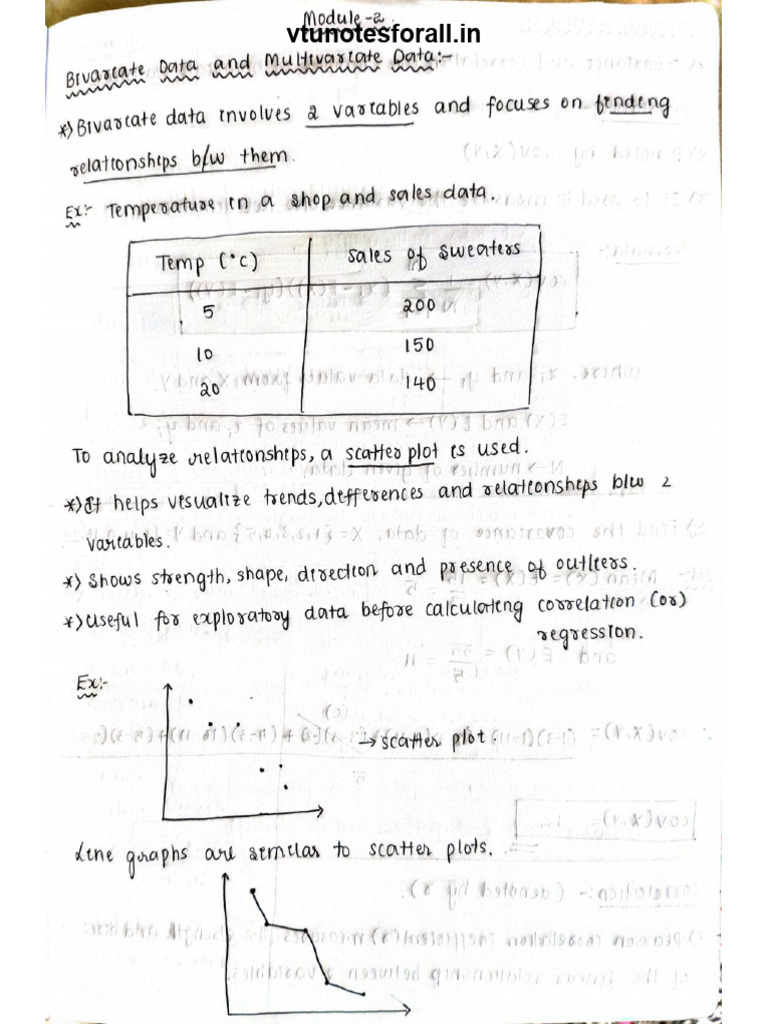 Module-2.
vtunotesforall.in
Bivariate Data and Multivariate Data:-
*) Bivariate data involves 2 variables and focuses on finding
relationships b/w them.
Ex:- Temperature in a shop and sales data.
Temp (°C) Sales of Sweaters
5 200
10 150
20 140
To analyze relationships, a scatter plot is used.
*) It helps visualize trends, differences and relationships b/w 2
variables.
*) Shows strength, shape, direction and presence of outliers.
*) Useful for exploratory data before calculating correlation (or)
regression.
Ex:-
→ scatter plot
Line graphs are similar to scatter plots.